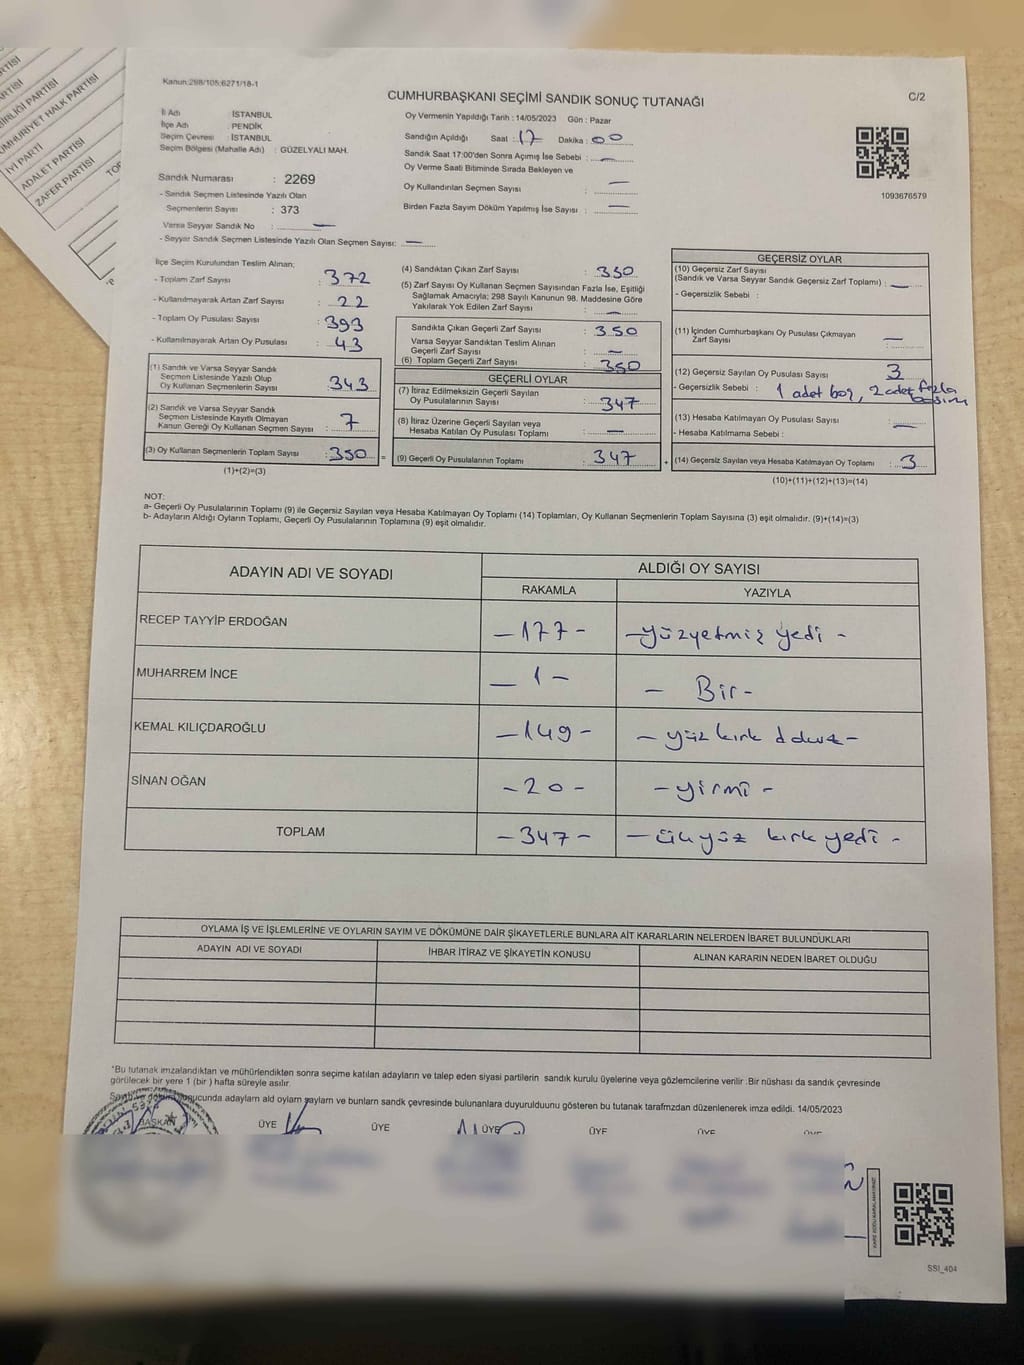 Kanun:298/105;6271/18-1
CUMHURBAŞKANI SEÇİMİ SANDIK SONUÇ TUTANAĞI
C/2
İl Adı : İSTANBUL
İlçe Adı : PENDİK
Seçim Çevresi : İSTANBUL
Seçim Bölgesi (Mahalle Adı) : GÜZELYALI MAH.
Sandık Numarası : 2269
- Sandık Seçmen Listesinde Yazılı Olan
Seçmenlerin Sayısı : 373
Varsa Seyyar Sandık No : —
- Seyyar Sandık Seçmen Listesinde Yazılı Olan Seçmen Sayısı: —
Oy Vermenin Yapıldığı Tarih : 14/05/2023 Gün : Pazar
Sandığın Açıldığı Saat : 17 Dakika : 00
Sandık Saat 17:00'den Sonra Açımış İse Sebebi : —
Oy Verme Saati Bitiminde Sırada Bekleyen ve
Oy Kullandırılan Seçmen Sayısı : —
Birden Fazla Sayım Döküm Yapılmış İse Sayısı : —
1093676579
İlçe Seçim Kurulundan Teslim Alınan;
- Toplam Zarf Sayısı : 372
- Kullanılmayarak Artan Zarf Sayısı : 22
- Toplam Oy Pusulası Sayısı : 393
- Kullanılmayarak Artan Oy Pusulası : 43
(1) Sandık ve Varsa Seyyar Sandık
Seçmen Listesinde Yazılı Olup
Oy Kullanan Seçmenlerin Sayısı : 343
(2) Sandık ve Varsa Seyyar Sandık
Seçmen Listesinde Kayıtlı Olmayan
Kanun Gereği Oy Kullanan Seçmen Sayısı : 7
(3) Oy Kullanan Seçmenlerin Toplam Sayısı : 350 =
(1)+(2)=(3)
(4) Sandıktan Çıkan Zarf Sayısı : 350
(5) Zarf Sayısı Oy Kullanan Seçmen Sayısından Fazla İse, Eşitliği
Sağlamak Amacıyla; 298 Sayılı Kanunun 98. Maddesine Göre
Yakılarak Yok Edilen Zarf Sayısı : —
Sandıkta Çıkan Geçerli Zarf Sayısı : 350
Varsa Seyyar Sandıktan Teslim Alınan
Geçerli Zarf Sayısı : —
(6) Toplam Geçerli Zarf Sayısı : 350
GEÇERLİ OYLAR
(7) İtiraz Edilmeksizin Geçerli Sayılan
Oy Pusulalarının Sayısı : 347
(8) İtiraz Üzerine Geçerli Sayılan veya
Hesaba Katılan Oy Pusulası Toplamı : —
(9) Geçerli Oy Pusulalarının Toplamı : 347 +
GEÇERSİZ OYLAR
(10) Geçersiz Zarf Sayısı
(Sandık ve Varsa Seyyar Sandık Geçersiz Zarf Toplamı) : —
- Geçersizlik Sebebi :
(11) İçinden Cumhurbaşkanı Oy Pusulası Çıkmayan
Zarf Sayısı : —
(12) Geçersiz Sayılan Oy Pusulası Sayısı : 3
- Geçersizlik Sebebi : 1 adet boş, 2 adet fazla
basım
(13) Hesaba Katılmayan Oy Pusulası Sayısı : —
- Hesaba Katılmama Sebebi :
(14) Geçersiz Sayılan veya Hesaba Katılmayan Oy Toplamı : 3
(10)+(11)+(12)+(13)=(14)
NOT:
a- Geçerli Oy Pusulalarının Toplamı (9) ile Geçersiz Sayılan veya Hesaba Katılmayan Oy Toplamı (14) Toplamları, Oy Kullanan Seçmenlerin Toplam Sayısına (3) eşit olmalıdır. (9)+(14)=(3)
b- Adayların Aldığı Oyların Toplamı, Geçerli Oy Pusulalarının Toplamına (9) eşit olmalıdır.
ADAYIN ADI VE SOYADI
ALDIĞI OY SAYISI
RAKAMLA YAZIYLA
RECEP TAYYİP ERDOĞAN - 177 - - yüzyetmiş yedi -
MUHARREM İNCE - 1 - - Bir -
KEMAL KILIÇDAROĞLU - 149 - - yüz kırk
SİNAN OĞAN - 20 - - yirmi -
TOPLAM - 347 - - yüz kırk yedi -
OYLAMA İŞ VE İŞLEMLERİNE VE OYLARIN SAYIM VE DÖKÜMÜNE DAİR ŞİKAYETLERLE BUNLARA AİT KARARLARIN NELERDEN İBARET BULUNDUKLARI
ADAYIN ADI VE SOYADI İHBAR İTİRAZ VE ŞİKAYETİN KONUSU ALINAN KARARIN NEDEN İBARET OLDUĞU
*Bu tutanak imzalandıktan ve mühürlendikten sonra seçime katılan adayların ve talep eden siyasi partilerin sandık kurulu üyelerine veya gözlemcilerine verilir .Bir nüshası da sandık çevresinde
görülecek bir yere 1 (bir ) hafta süreyle asılır.
adayların ald oyların sayların ve bunların sandk çevresinde bulunanlara duyurulduunu gösteren bu tutanak tarafmzdan düzenlenerek imza edildi. 14/05/2023
BAŞKAN ÜYE ÜYE ÜYE ÜYE
SSI_404
CUMHURİYET HALK PARTİSİ
İYİ PARTİ
ADALET PARTİSİ
ZAFER PARTİSİ